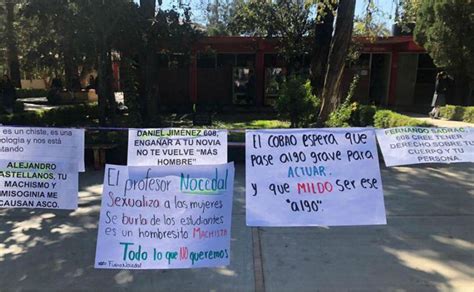 ES UN CHISTE, NO ES
OLOGIA Y NOS
ALEJANDRO
CASTELLANOS, TU
MACHISMO Y
MISOGINIA ME
CAUSAN ASCO.
DANIEL JIMÉNEZ 608,
ENGAÑAR A TU NOVIA
NO TE VUELVE "MÁS
HOMBRE"
El profesor Nocedal
Sexualiza a las mujeres
Se burla de los estudiantes
es un hombresito Machista
Todo lo que NO queremos
El COBAO ESPERA que
pase algo grave para
ACTUAR.
y que MIEDO ser ese
"algo".
FERNANDO
608 CREE TENER
DERECHO SOBRE TU
CUERPO Y TU
PERSONA.